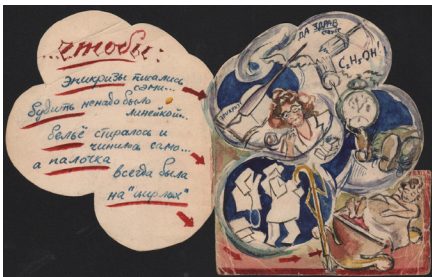 ...чтобы:
эпикризы писались
сами...
будить не надо было
линейкой...
бельё стиралось и
чинилось само...
а палочка
всегда была
на "
ДА ЗДРАВ
C₂H₅OH!